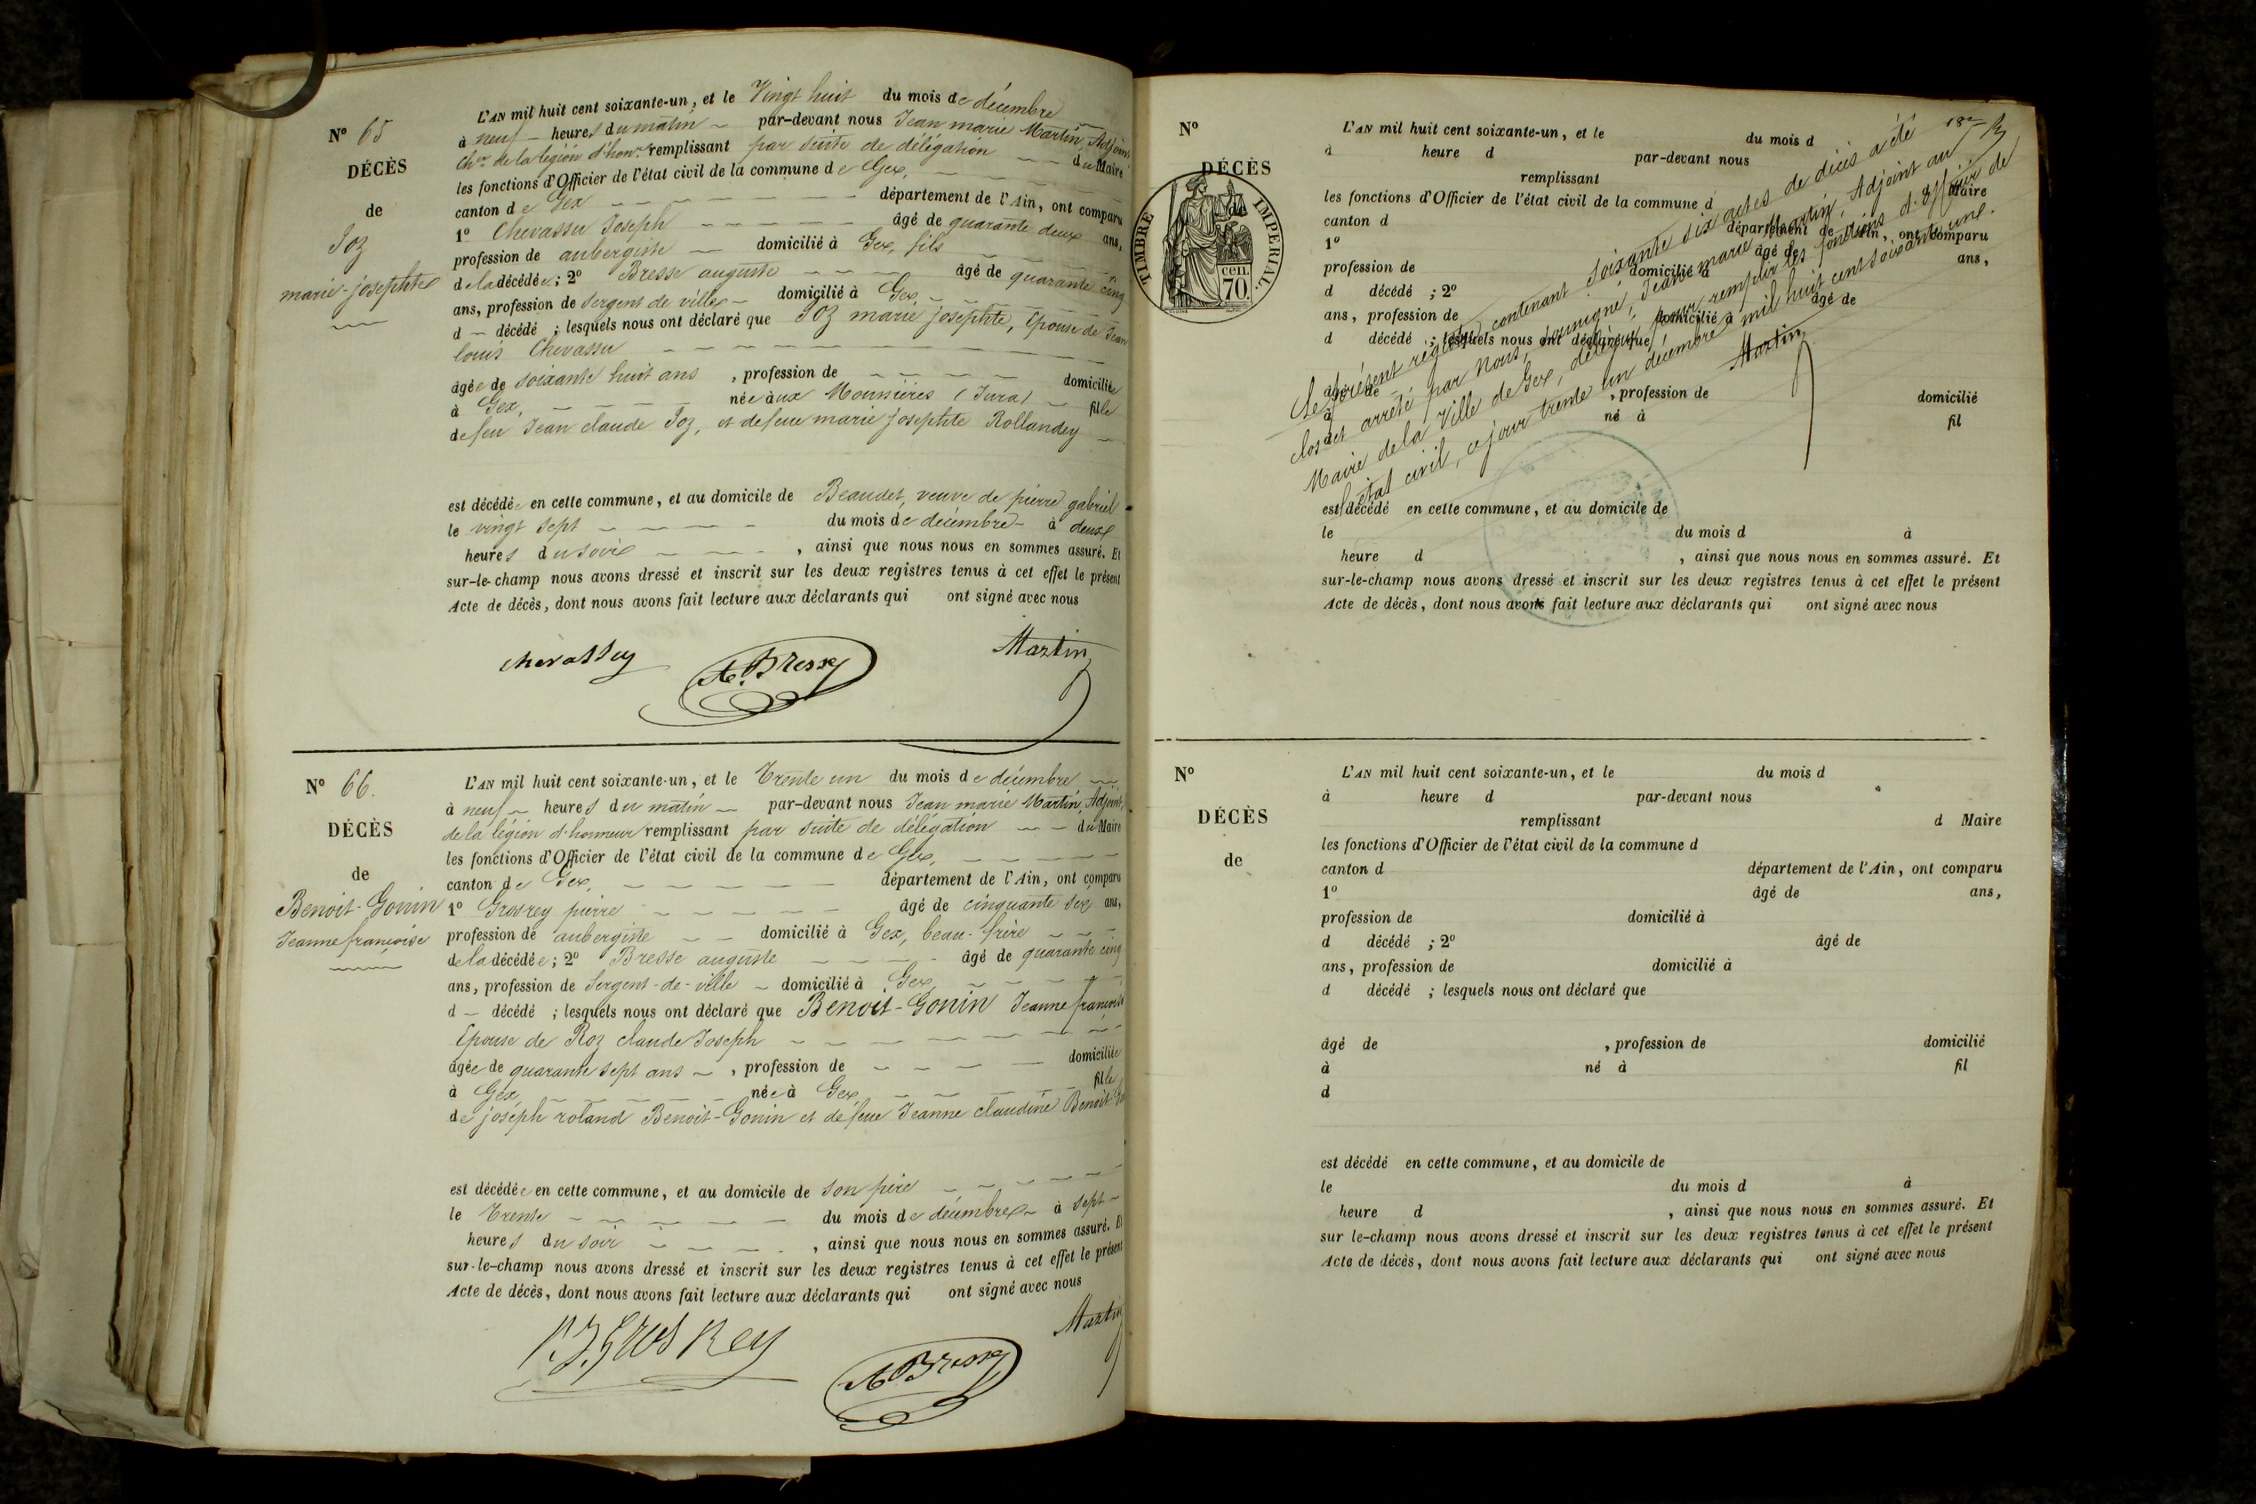 N° 65
DÉCÈS
de
Joz
marie-josephte
L'AN mil huit cent soixante-un, et le Vingt huit du mois de décembre
à neuf heures du matin par-devant nous Jean marie Martin, Adjoint
Cher de la légion d'honr remplissant par suite de délégation du Maire
les fonctions d'Officier de l'état civil de la commune de Gex,
canton de Gex département de l'Ain, ont comparu
1° Chevassu Joseph âgé de quarante deux ans,
profession de aubergiste domicilié à Gex, fils
de la décédée; 2° Bresse auguste âgé de quarante cinq
ans, profession de Sergent de ville domicilié à Gex,
d décédé ; lesquels nous ont déclaré que Joz marie josephte, Epouse de Jean
louis Chevassu
âgée de soixante huit ans , profession de domiciliée
à Gex, née aux Moussières (Jura) fille
de feu Jean claude Joz, et de feue marie josephte Rollandey
est décédée en cette commune, et au domicile de Beaudet, veuve de pierre gabriel
le vingt sept du mois de décembre à deux
heures du soir , ainsi que nous nous en sommes assuré. Et
sur-le-champ nous avons dressé et inscrit sur les deux registres tenus à cet effet le présent
Acte de décès, dont nous avons fait lecture aux déclarants qui ont signé avec nous
chevassu A. Bresse Martin
N° 66.
DÉCÈS
de
Benoit-Gonin
Jeanne françoise
L'AN mil huit cent soixante-un, et le Trente un du mois de décembre
à neuf heures du matin par-devant nous Jean marie Martin, Adjoint,
de la légion d'honneur remplissant par suite de délégation du Maire
les fonctions d'Officier de l'état civil de la commune de Gex,
canton de Gex, département de l'Ain, ont comparu
1° Grosrey pierre âgé de cinquante six ans,
profession de aubergiste domicilié à Gex, beau-frère
de la décédée; 2° Bresse auguste âgé de quarante cinq
ans, profession de Sergent-de-ville domicilié à Gex,
d décédé ; lesquels nous ont déclaré que Benoit-Gonin Jeanne françoise
Epouse de Roz claude Joseph
âgée de quarante sept ans , profession de domiciliée
à Gex, née à Gex, fille
de joseph roland Benoit-Gonin et de feue Jeanne claudine Benoit
est décédée en cette commune, et au domicile de son père
le Trente du mois de décembre à sept
heures du soir , ainsi que nous nous en sommes assuré. Et
sur-le-champ nous avons dressé et inscrit sur les deux registres tenus à cet effet le présent
Acte de décès, dont nous avons fait lecture aux déclarants qui ont signé avec nous
P. J. Gros Rey A Bresse Martin
N°
DÉCÈS
de
TIMBRE IMPÉRIAL.
70. cen.
L'AN mil huit cent soixante-un, et le du mois d
à heure d par-devant nous
remplissant d Maire
les fonctions d'Officier de l'état civil de la commune d
canton d département de l'Ain, ont comparu
1° âgé de ans,
profession de domicilié à
d décédé ; 2° âgé de
ans, profession de domicilié à
d décédé ; lesquels nous ont déclaré que
âgé de , profession de domicilié
à né à fil
d
Le présent registre contenant soixante six actes de décès a été
clos et arrêté par Nous, soussigné, Jean marie Martin, Adjoint au
Maire de la Ville de Gex, délégué pour remplir les fonctions d'Officier de
l'état civil, ce jour trente un décembre mil huit cent soixante un.
Martin
est décédé en cette commune, et au domicile de
le du mois d à
heure d , ainsi que nous nous en sommes assuré. Et
sur-le-champ nous avons dressé et inscrit sur les deux registres tenus à cet effet le présent
Acte de décès, dont nous avons fait lecture aux déclarants qui ont signé avec nous
N°
DÉCÈS
de
L'AN mil huit cent soixante-un, et le du mois d
à heure d par-devant nous
remplissant d Maire
les fonctions d'Officier de l'état civil de la commune d
canton d département de l'Ain, ont comparu
1° âgé de ans,
profession de domicilié à
d décédé ; 2° âgé de
ans, profession de domicilié à
d décédé ; lesquels nous ont déclaré que
âgé de , profession de domicilié
à né à fil
d
est décédé en cette commune, et au domicile de
le du mois d à
heure d , ainsi que nous nous en sommes assuré. Et
sur le-champ nous avons dressé et inscrit sur les deux registres tenus à cet effet le présent
Acte de décès, dont nous avons fait lecture aux déclarants qui ont signé avec nous